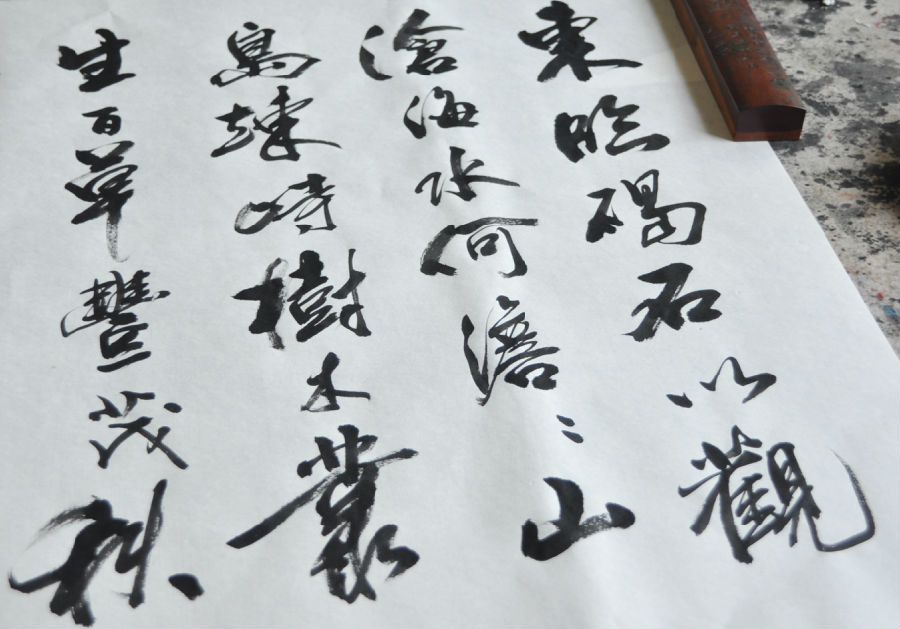 東臨碣石以觀
滄海水何澹〻山
島竦峙樹木叢
生百草豐茂秋